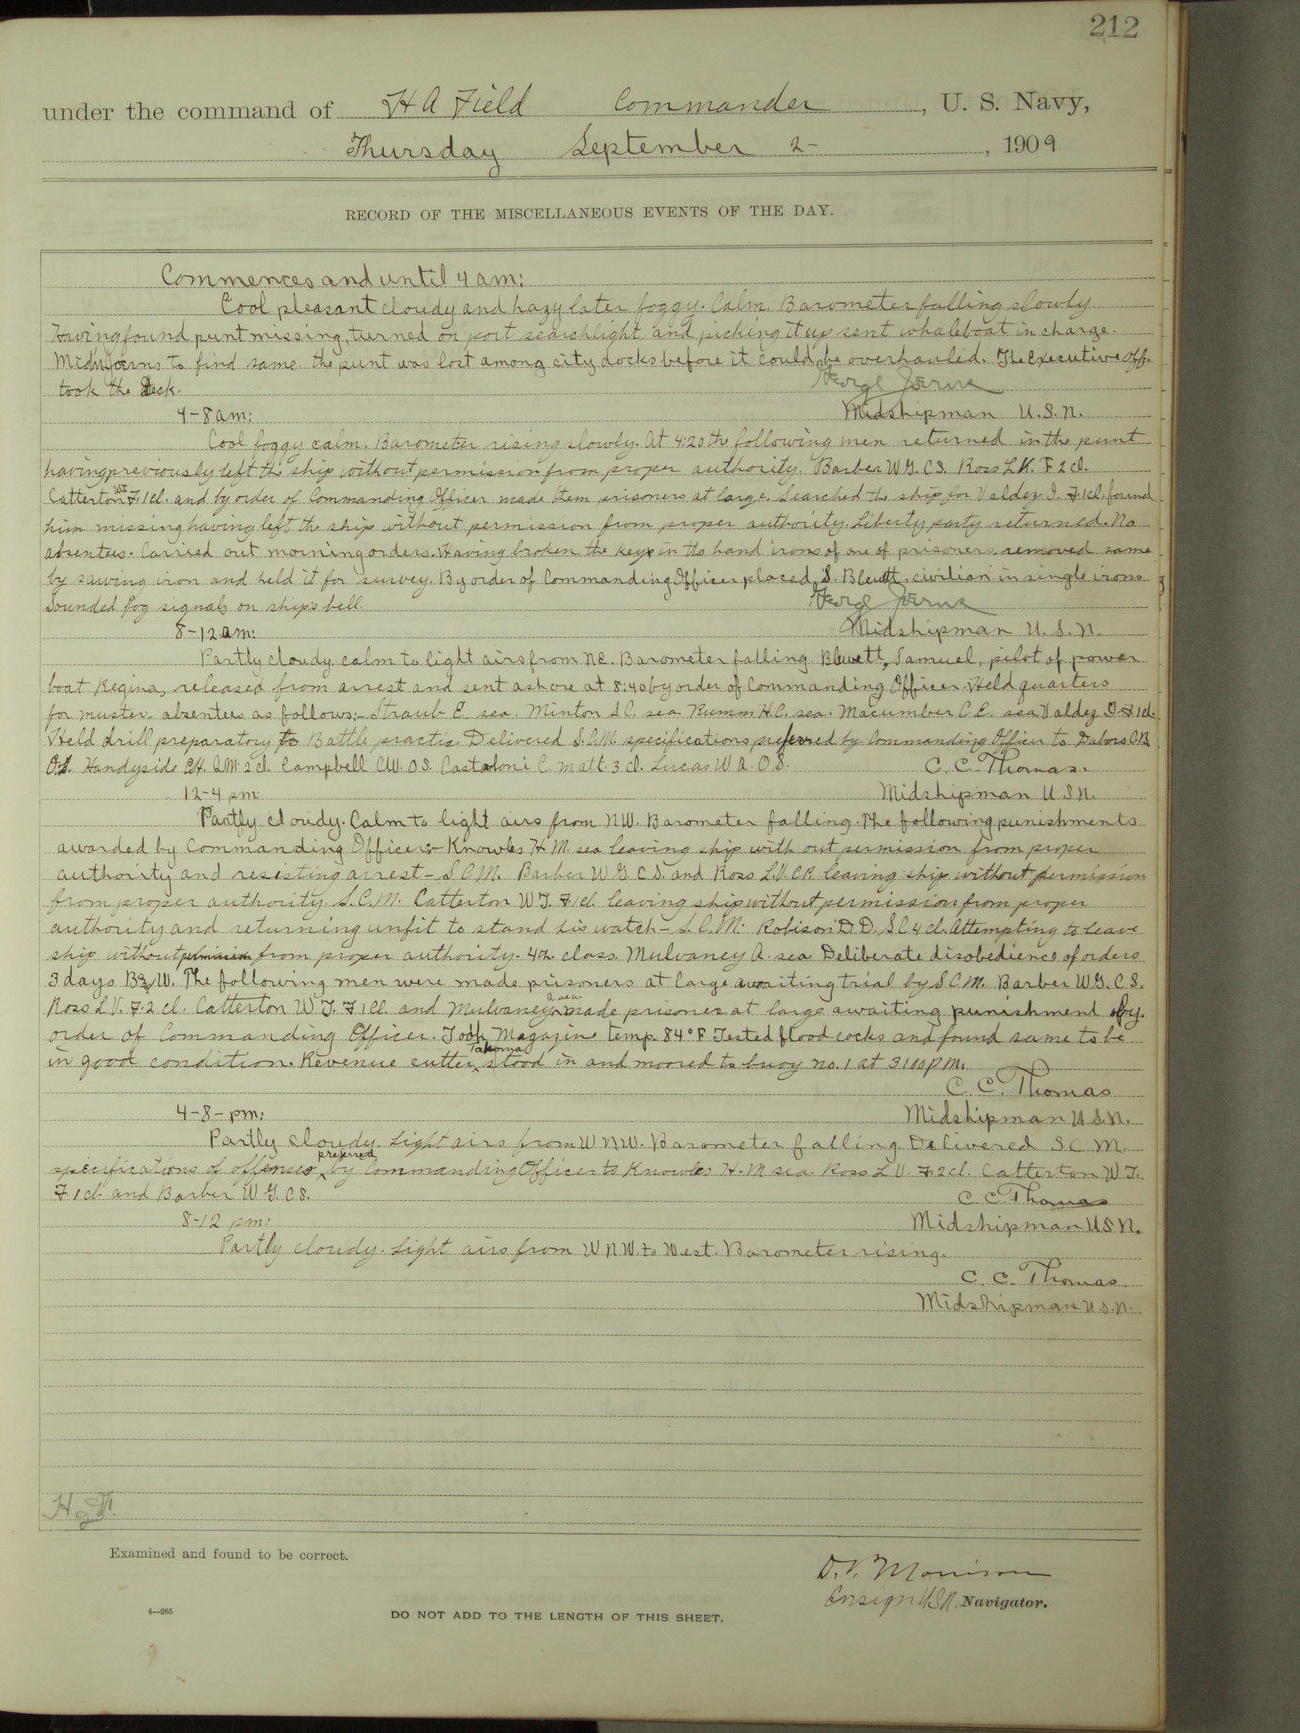 212
under the command of H A Field Commander, U. S. Navy,
Thursday September 2-, 1909
RECORD OF THE MISCELLANEOUS EVENTS OF THE DAY.
Commences and until 4 am:
Cool pleasant cloudy and hazy later foggy. Calm. Barometer falling slowly
Having found punt missing, turned on port searchlight and picking it up sent whaleboat in charge.
to find same. the punt was lost among city docks before it could be overhauled. The Executive Off.
took the Deck.
Midshipman U.S.N.
4-8 am:
Cool foggy calm. Barometer rising slowly. At 4:20 the following men returned in the punt
having previously left the ship without permission from proper authority. Barber W.G. C.S. Ross L.V. F 2 cl.
Catterton WT F 1 cl. and by order of Commanding Officer made them prisoners at large. Searched the ship for Valdez I. F. 1 cl. found
him missing having left the ship without permission from proper authority. Liberty party returned. No
absentees. Carried out morning orders. Having broken the key in the hand irons of one of prisoners removed same
by sawing iron and held it for survey. By order of Commanding Officer placed S. Blewett, civilian in single irons
Sounded fog signals on ships bell
Midshipman U.S.N.
8-12 am:
Partly cloudy. calm to light airs from NE. Barometer falling. Blewett, Samuel, pilot of power
boat Regina, released from arrest and sent ashore at 8:40 by order of Commanding Officer. Held quarters
for muster. absentees as follows:- Straub E. sea. Minton S.C. sea Rumm H.C. sea. Macumber C.E. sea Valdez I. F. 1 cl.
Held drill preparatory to Battle practice. Delivered S.C.M. specifications preferred by Commanding Officer to Dubors C.B.
O.S. Handyside C.H. Q.M. 2 cl. Campbell C.W. O.S. Castaloni C. Matt. 3 cl. Lucas W.A. O.S.
C. C. Thomas.
Midshipman U.S.N.
12-4 pm:
Partly cloudy. Calm to light airs from NW. Barometer falling. The following punishments
awarded by Commanding Officer:- Knowles H.M. sea leaving ship with out permission from proper
authority and resisting arrest - S.C.M. Barber W.G. C.S. and Ross L.V. leaving ship without permission
from proper authority S.C.M. Catterton W.T. F. 1 cl. leaving ship without permission from proper
authority and returning unfit to stand his watch - S.C.M. Robison D.D. S.C. 4 cl. Attempting to leave
ship without permission from proper authority. 4th class. Mulvaney A. sea Deliberate disobedience of orders
3 days B & W. The following men were made prisoners at large awaiting trial by S.C.M. Barber W.G. C.S.
Ross L.V. F. 2 cl. Catterton W.T. F. 1 Cl. and Mulvaney A. sea made prisoner at large awaiting punishment by.
order of Commanding Officer. Took Magazine temp. 84° F Tested flood cocks and found same to be
in good condition. Revenue cutter Tahoma stood in and moored to buoy no. 1 at 3:00 P.M.
C. C. Thomas
Midshipman U.S.N.
4-8-pm:
Partly cloudy. Light airs from WNW. Barometer falling. Delivered S C M.
specifications of offenses preferred by Commanding Officer to Knowles H.M sea. Ross L V. F. 2 cl. Catterton W T.
F 1 cl. and Barber W G. C S.
C. C. Thomas
Midshipman U.S.N.
8-12 pm:
Partly cloudy. Light airs from WNW. to West. Barometer rising.
C. C. Thomas
Midshipman U.S.N.
Examined and found to be correct.
D. V. Morrison
Ensign USN. Navigator.
4—265
DO NOT ADD TO THE LENGTH OF THIS SHEET.